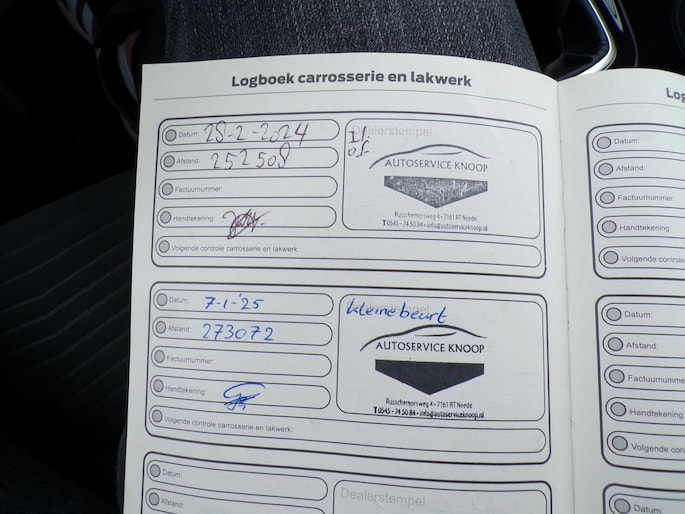 Logboek carrosserie en lakwerk
Datum: 28-2-2024
Afstand: 252508
Factuurnummer:
Handtekening:
Volgende controle carrosserie en lakwerk:
Dealerstempel
AUTOSERVICE KNOOP
Russchemorsweg 4 • 7161 RT Neede
T 0545 - 74 50 84 • info@autoservicenoop.nl
Datum: 7-1-'25
Afstand: 273072
Factuurnummer:
Handtekening:
Volgende controle carrosserie en lakwerk:
Dealerstempel
kleine beurt
AUTOSERVICE KNOOP
Russchemorsweg 4 • 7161 RT Neede
T 0545 - 74 50 84 • info@autoserviceknoop.nl
Datum:
Afstand:
Dealerstempel
Log
Datum:
Afstand:
Factuurnummer:
Handtekening:
Volgende controle
Datum:
Afstand:
Factuurnumme
Handtekening:
Volgende con
Datum: